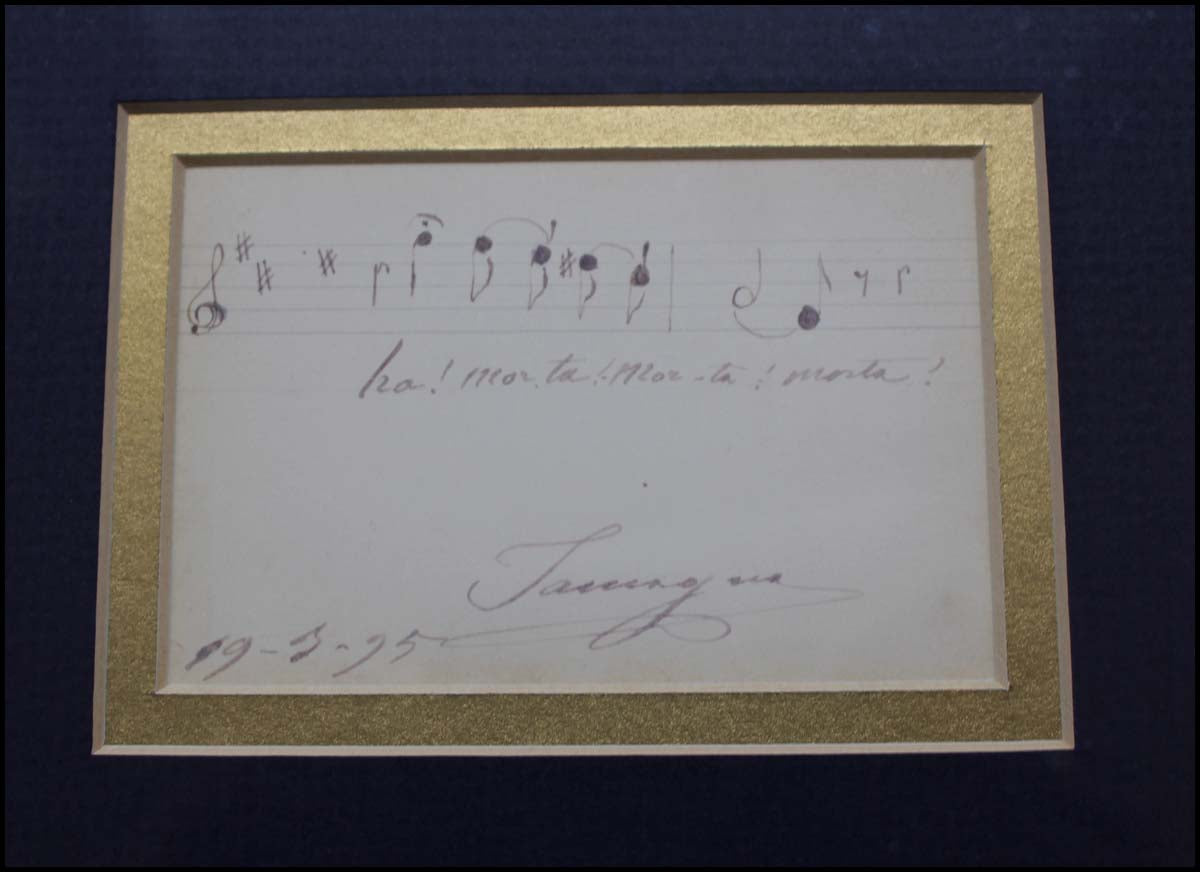 ha! mor-ta! Mor-ta! morta!
Tamagno
19-3-95